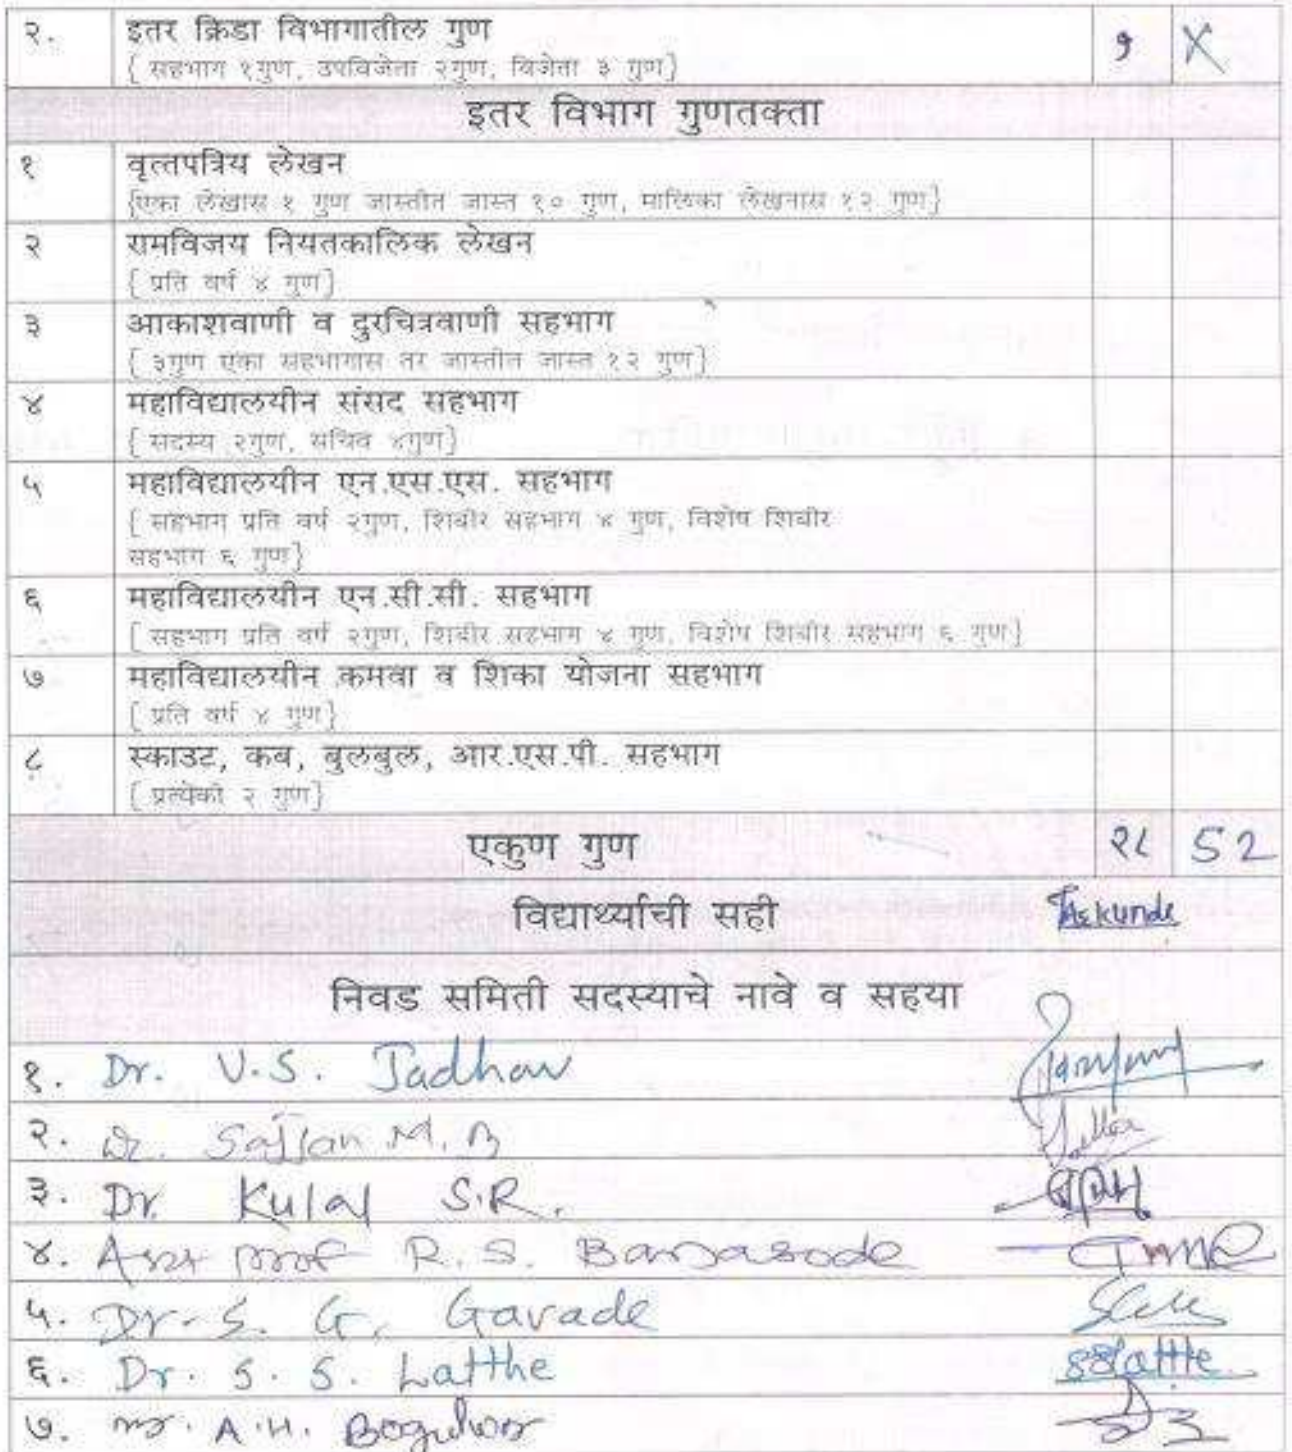 २. इतर क्रिडा विभागातील गुण १ X
{ सहभाग १गुण, उपविजेता २गुण, विजेता ३ गुण}
इतर विभाग गुणतक्ता
१ वृत्तपत्रिय लेखन
{एका लेखास १ गुण जास्तीत जास्त १० गुण, मालिका लेखनास १२ गुण}
२ रामविजय नियतकालिक लेखन
{ प्रति वर्ष ४ गुण}
३ आकाशवाणी व दुरचित्रवाणी सहभाग
{ ३गुण एका सहभागास तर जास्तीत जास्त १२ गुण}
४ महाविद्यालयीन संसद सहभाग
{ सदस्य २गुण, सचिव ४गुण}
५ महाविद्यालयीन एन.एस.एस. सहभाग
{ सहभाग प्रति वर्ष २गुण, शिबीर सहभाग ४ गुण, विशेष शिबीर
सहभाग ६ गुण}
६ महाविद्यालयीन एन.सी.सी. सहभाग
{ सहभाग प्रति वर्ष २गुण, शिबीर सहभाग ४ गुण, विशेष शिबीर सहभाग ६ गुण}
७ महाविद्यालयीन कमवा व शिका योजना सहभाग
{ प्रति वर्ष ४ गुण}
८ स्काउट, कब, बुलबुल, आर.एस.पी. सहभाग
{ प्रत्येकी २ गुण}
एकुण गुण २८ 52
विद्यार्थ्याची सही Askunde
निवड समिती सदस्याचे नावे व सहया
१. Dr. V.S. Jadhav
२. Dr. Sajjan M.B
३. Dr. Kulal S.R.
४. R.S. Bansode
५. Dr. S. G. Gavade
६. Dr. S. S. Latthe SSLatthe
७. mr. A.H.